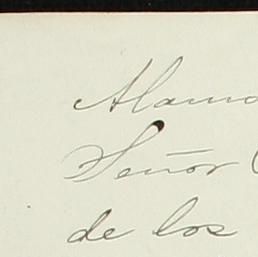 Alamo
Señor
de los